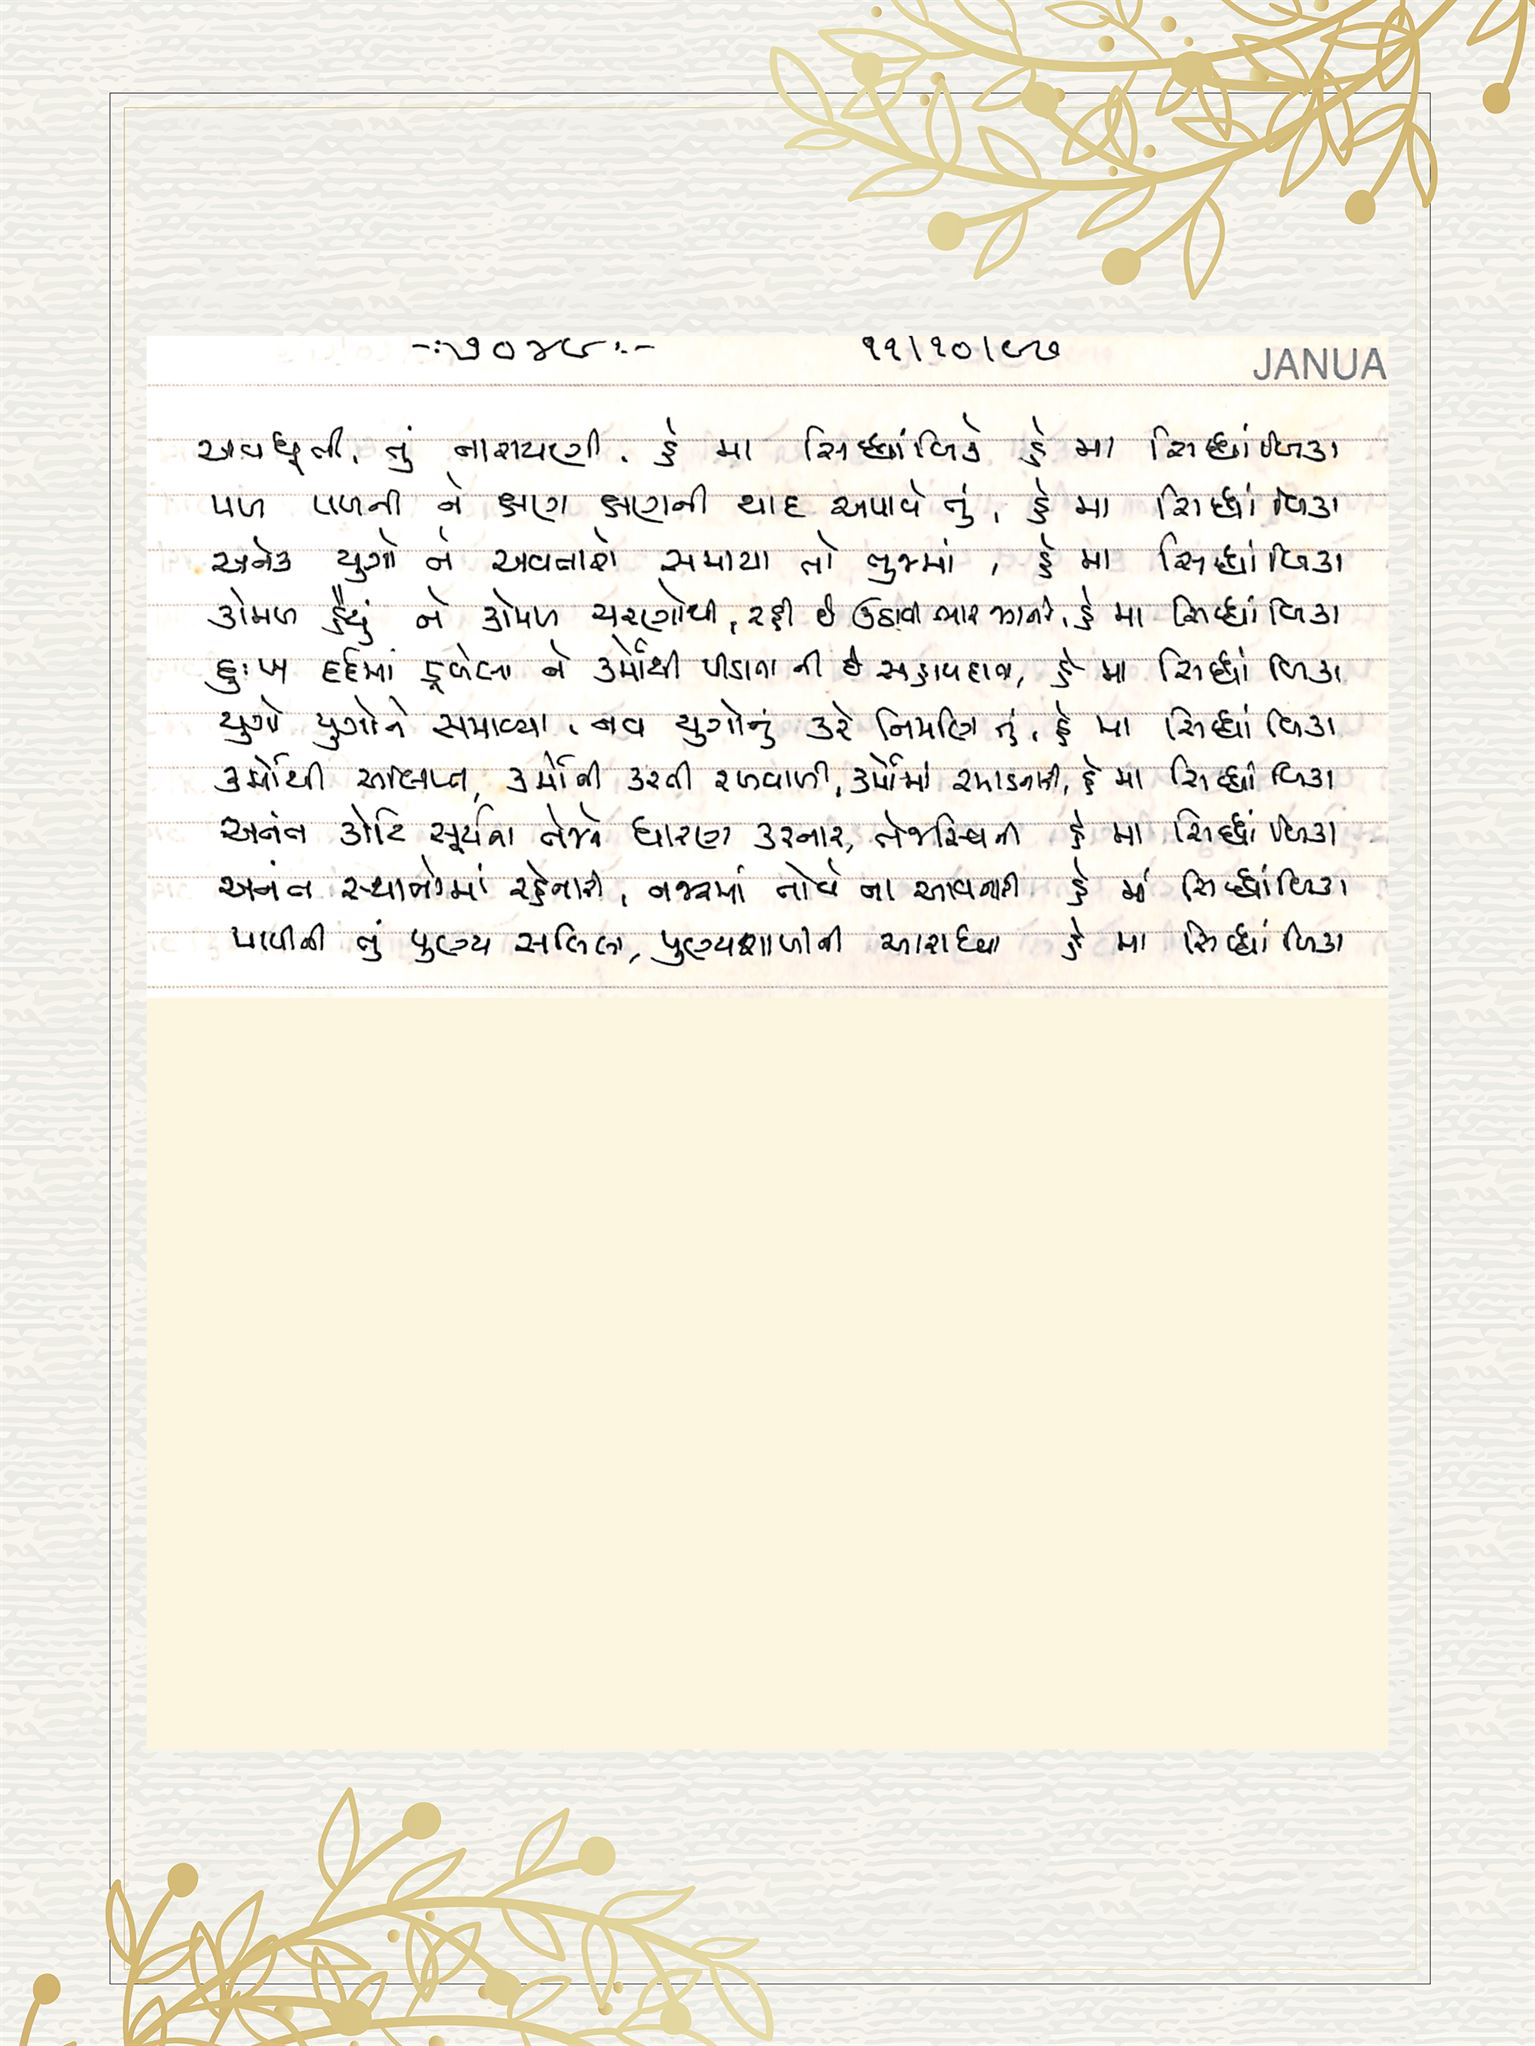 -:૭૦૪૯:- ૧૧/૧૦/૯૭
JANUA
અવધૂતી, તું નારાયણી, હે મા સિધ્ધાંબિકે હે મા સિધ્ધાંબિકા
પળ પળની ને ક્ષણ ક્ષણની યાદ અપાવે તું, હે મા સિધ્ધાંબિકા
અનેક યુગો ને અવતારો સમાયા તો તુજમાં, હે મા સિધ્ધાંબિકા
કોમળ હૈયું ને કોમળ ચરણોથી, રહી છે ઉઠાવી ભાર હે મા સિધ્ધાંબિકા
દુઃખ દર્દમાં ડૂબેલા ને કર્મોથી પીડાતા ની છે હે મા સિધ્ધાંબિકા
યુગો યુગોને સમાવ્યા, નવ યુગોનું કરે નિર્માણ તું, હે મા સિધ્ધાંબિકા
કર્મોથી અલિપ્ત, કર્મોની કરતી રખવાળી, કર્મોમાં રમાડનારી, હે મા સિધ્ધાંબિકા
અનંત કોટિ સૂર્યના તેજને ધારણ કરનાર, તેજસ્વિની હે મા સિધ્ધાંબિકા
અનંત સ્થાનોમાં રહેનારી, નજરમાં તોયે ના આવનારી હે મા સિધ્ધાંબિકા
પાપીની તું પુણ્ય સલિલા, પુણ્યશાળીની આરાધ્યા હે મા સિધ્ધાંબિકા